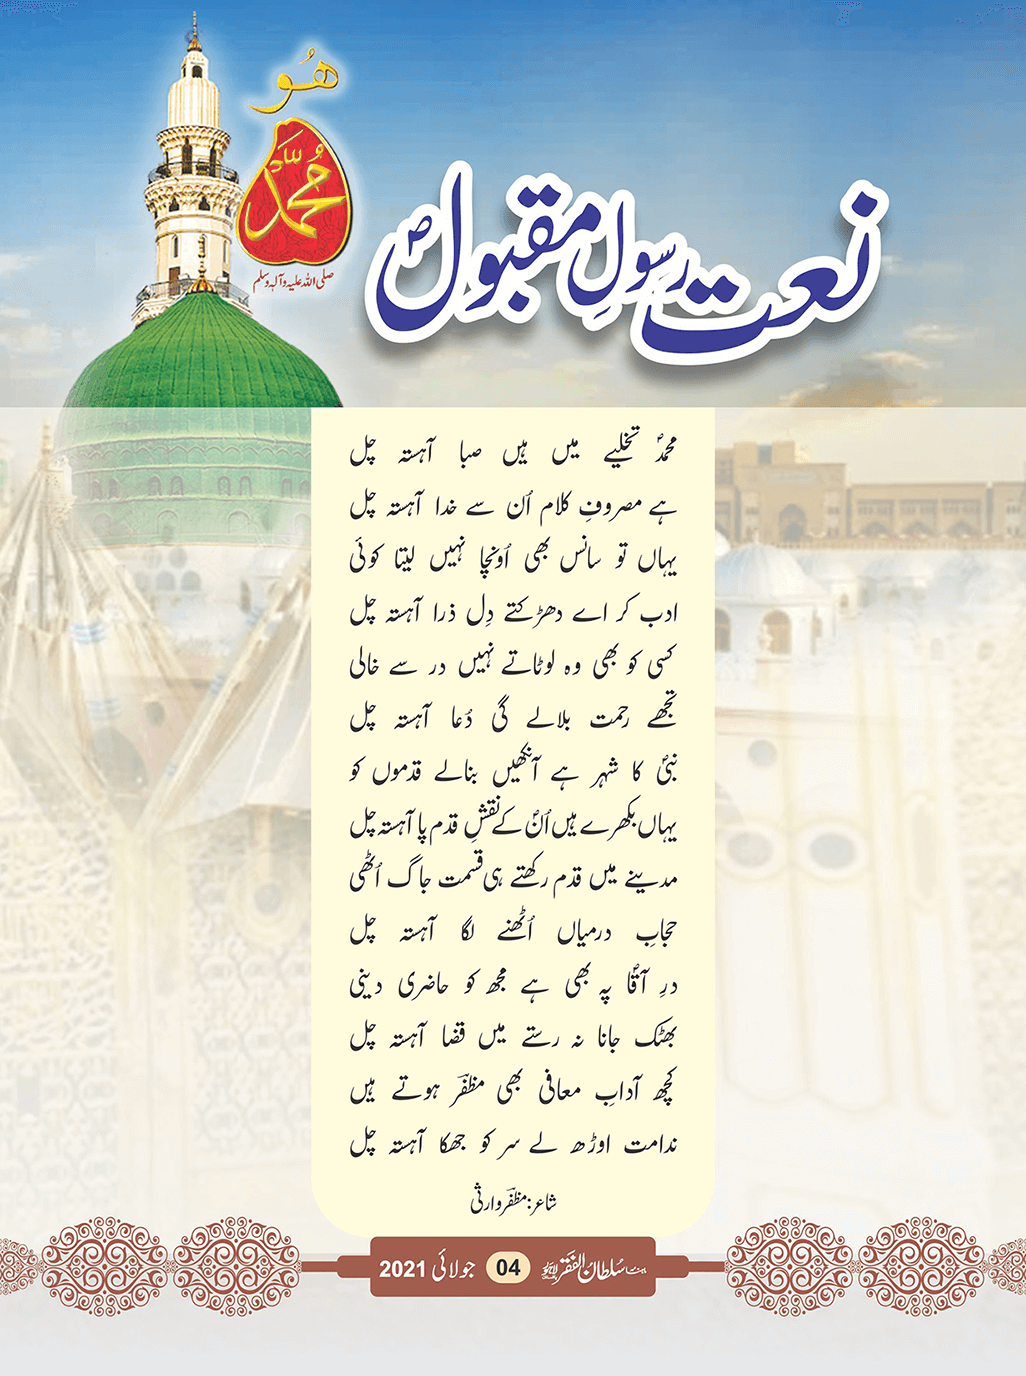 ھُو
مُحمدؐ
صلی اللہ علیہ وآلہٖ وسلم
نعت رسولِ مقبولؐ
محمدؐ تخلیے میں ہیں صبا آہستہ چل
ہے مصروفِ کلام اُن سے خدا آہستہ چل
یہاں تو سانس بھی اُونچا نہیں لیتا کوئی
ادب کر اے دھڑکتے دِل ذرا آہستہ چل
کسی کو بھی وہ لوٹاتے نہیں در سے خالی
تجھے رحمت بلالے گی دُعا آہستہ چل
نبیؐ کا شہر ہے آنکھیں بنالے قدموں کو
یہاں بکھرے ہیں اُنؐ کے نقشِ قدم پا آہستہ چل
مدینے میں قدم رکھتے ہی قسمت جاگ اُٹھی
حجابِ درمیاں اُٹھنے لگا آہستہ چل
درِ آقاؐ پہ بھی ہے مجھ کو حاضری دینی
بھٹک جانا نہ رستے میں قضا آہستہ چل
کچھ آدابِ معافی بھی مظفرؔ ہوتے ہیں
ندامت اوڑھ لے سر کو جھکا آہستہ چل
شاعر: مظفرؔ وارثی
ماہنامہ سُلطان الفقر لاہور 04 جولائی 2021